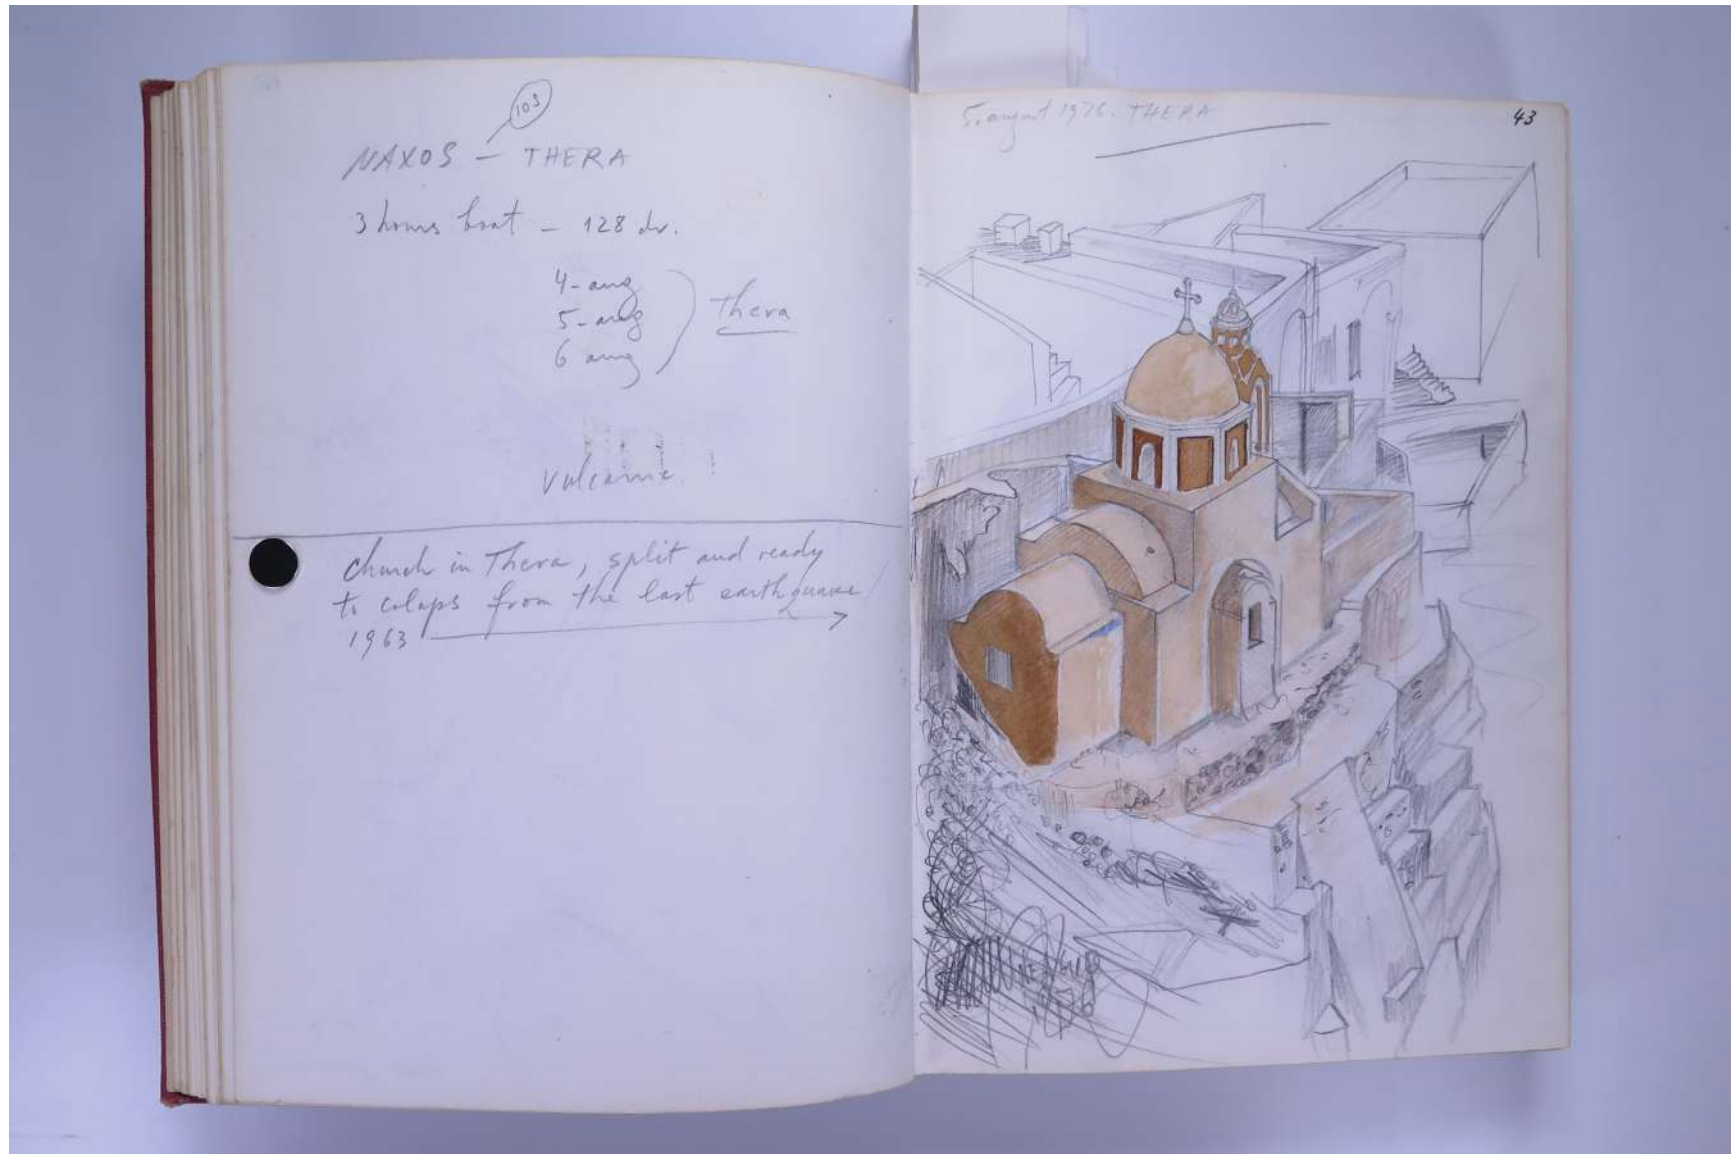 103
NAXOS — THERA
3 hours boat — 128 dr.
4- aug
5- aug
6 aug
Thera
vulcanic. !
church in Thera, split and ready
to colaps from the last earthquake
1963
5. august 1976. THERA
43